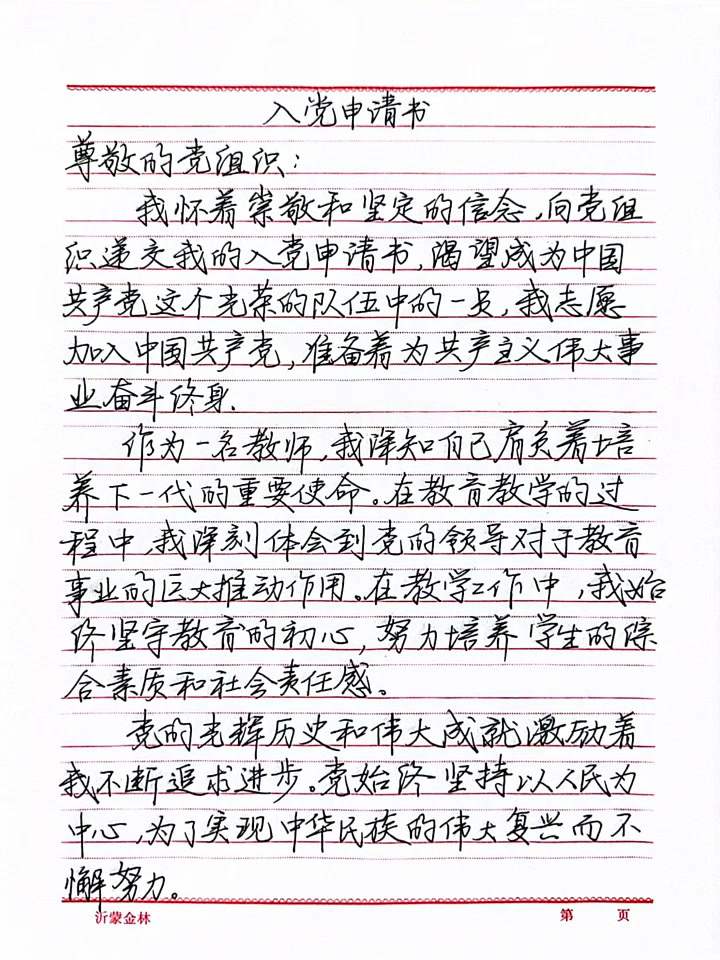 入党申请书
尊敬的党组织：
我怀着崇敬和坚定的信念，向党组
织递交我的入党申请书，渴望成为中国
共产党这个光荣的队伍中的一员，我志愿
加入中国共产党，准备着为共产主义伟大事
业奋斗终身.
作为一名教师，我深知自己肩负着培
养下一代的重要使命。在教育教学的过
程中，我深刻体会到党的领导对于教育
事业的巨大推动作用。在教学工作中，我始
终坚守教育的初心，努力培养学生的综
合素质和社会责任感。
党的光辉历史和伟大成就激励着
我不断追求进步。党始终坚持以人民为
中心，为了实现中华民族的伟大复兴而不
懈努力。
沂蒙金林 第 页